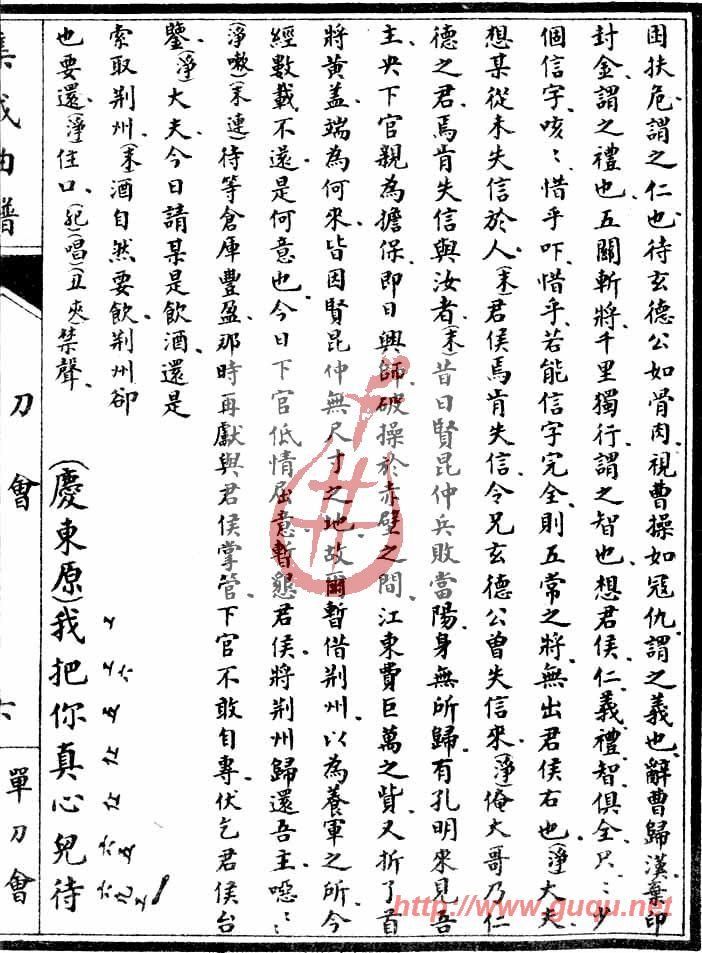 困扶危、謂之仁也、待玄德公如骨肉、視曹操如寇仇、謂之義也、辭曹歸漢、棄印
封金、謂之禮也、五關斬將、千里獨行、謂之智也、想君侯、仁義禮智俱全、只〻少
個信字、咳〻惜乎吓、惜乎、若能信字完全、則五常之將、無出君侯右也、(淨)大夫、
想某從未失信於人、(末)君侯焉肯失信、令兄玄德公曾失信來、(淨)俺大哥乃仁
德之君、焉肯失信與汝者、(末)昔日賢昆仲兵敗當陽、身無所歸、有孔明來見吾
主、央下官親為擔保、即日興師、破操於赤壁之間、江東費巨萬之貲、又折了首
將黃蓋、端為何來、皆因賢昆仲無尺寸之地、故爾暫借荆州、以為養軍之所、今
經數載不還、是何意也、今日下官低情屈意、暫懇君侯、將荆州歸還吾主、噁〻、
(淨嗽)(末連)待等倉庫豐盈、那時再獻與君侯掌管、下官不敢自專、伏乞君侯台
鑒、(淨)大夫、今日請某是飲酒、還是
索取荆州、(末)酒自然要飲、荆州卻
也要還、(淨)住口、(起)(唱)(丑夾)禁聲、
(慶東原)我把你真心兒待
集成曲譜
刀會
六
單刀會
http://www.guqu.net